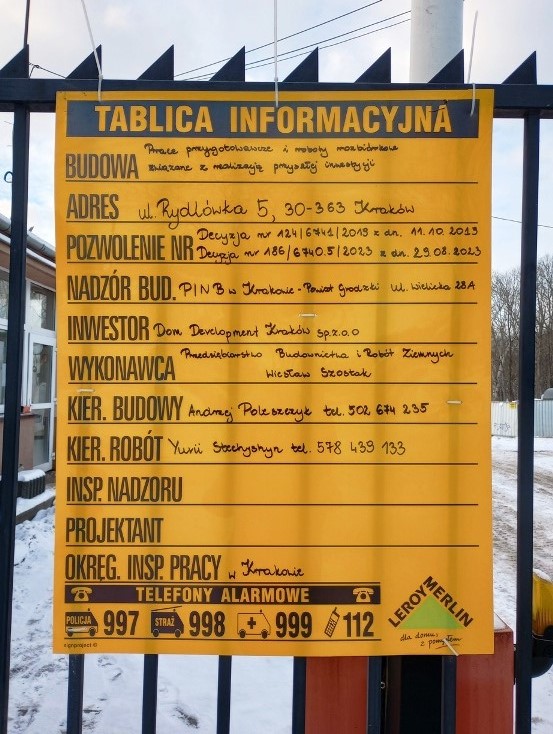 TABLICA INFORMACYJNA
BUDOWA Prace przygotowawcze i roboty rozbiórkowe
związane z realizacją przyszłej inwestycji
ADRES ul. Rydlówka 5, 30-363 Kraków
POZWOLENIE NR Decyzja nr 124/6741/2019 z dn. 11.10.2019
Decyzja nr 186/6740.5/2023 z dn. 29.08.2023
NADZÓR BUD. PINB w Krakowie - Powiat Grodzki ul. Wielicka 28A
INWESTOR Dom Development Kraków sp.z.o.o
WYKONAWCA Przedsiębiorstwo Budownictwa i Robót Ziemnych
Wiesław Szostak
KIER. BUDOWY Andrzej Poleszczyk tel. 502 674 235
KIER. ROBÓT Yurii Stezhyshyn tel. 578 439 133
INSP. NADZORU
PROJEKTANT
OKRĘG. INSP. PRACY w Krakowie
TELEFONY ALARMOWE
POLICJA 997 STRAŻ 998 999 112
LEROY MERLIN
dla domu
z pomysłem
signproject ©